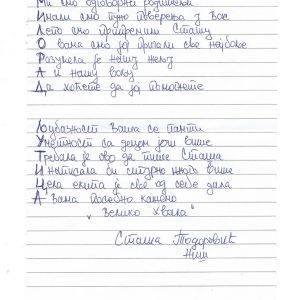 Ми смо одговорни родитељи
Имали смо пуно поверења у Вас
Лепо смо припремили Сташу
О вама смо јој причали све најбоље
Разумела је нашу жељу
А и нашу вољу
Да хоћете да јој помогнете
Љубазност Ваша се памти
Уметност са децом још више
Требала је ово да пише Сташа
И написала би сигурно много више
Цела екипа је све од себе дала
А Вама посебно кажемо
"Велико хвала"
Сташа Тодоровић
Ниш